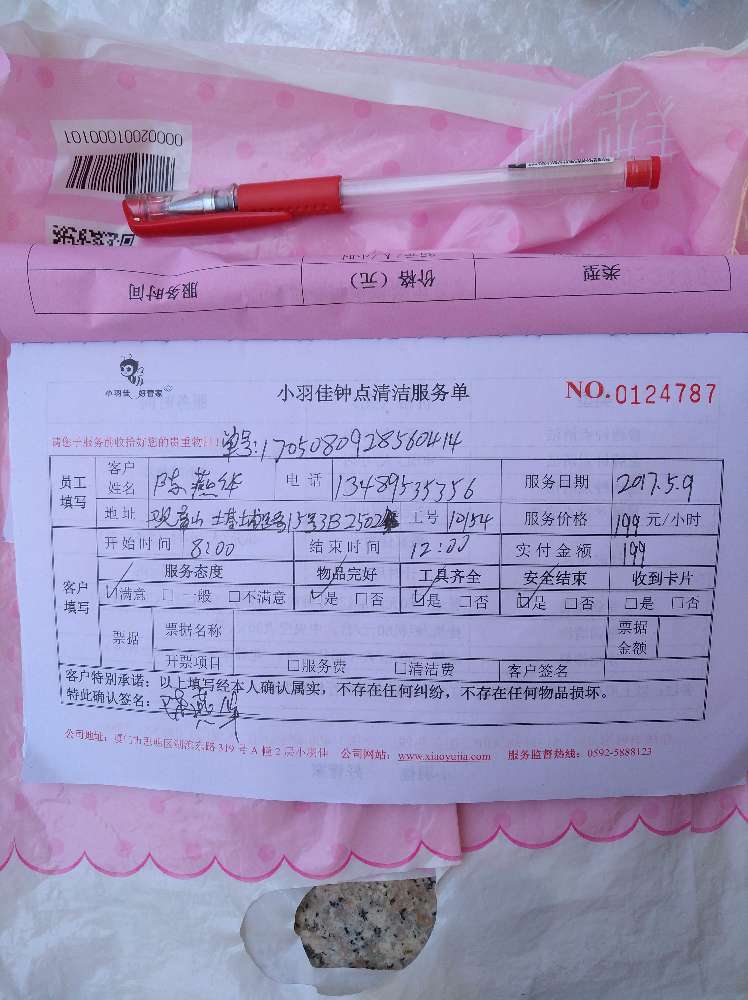 0000020010000101
服务时间
价格（元）
类型
小羽佳 好管家
小羽佳钟点清洁服务单
NO.0124787
请您于服务前收拾好您的贵重物品！
单号:1705080928560414
员工填写
客户姓名 陈燕华 电话 13489535356 服务日期 2017.5.9
地址 观音山 15号3B2502 工号 10154 服务价格 199 元/小时
客户填写
开始时间 8:00 结束时间 12:00 实付金额 199
服务态度 物品完好 工具齐全 安全结束 收到卡片
☑满意 □一般 □不满意 ☑是 □否 ☑是 □否 ☑是 □否 □是 □否
票据 票据名称 票据金额
开票项目 □服务费 □清洁费 客户签名
客户特别承诺：以上填写经本人确认属实，不存在任何纠纷，不存在任何物品损坏。
特此确认签名：陈燕华
公司地址：厦门市思明区湖滨东路 319 号 A 幢 2 层小羽佳 公司网站：www.xiaoyujia.com 服务监督热线：0592-5888123